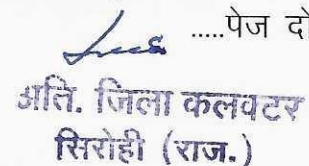 .....पेज दो
अति. जिला कलक्टर
सिरोही (राज.)